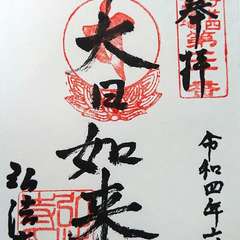 奉拝
令和四年六
大日如来
弘法